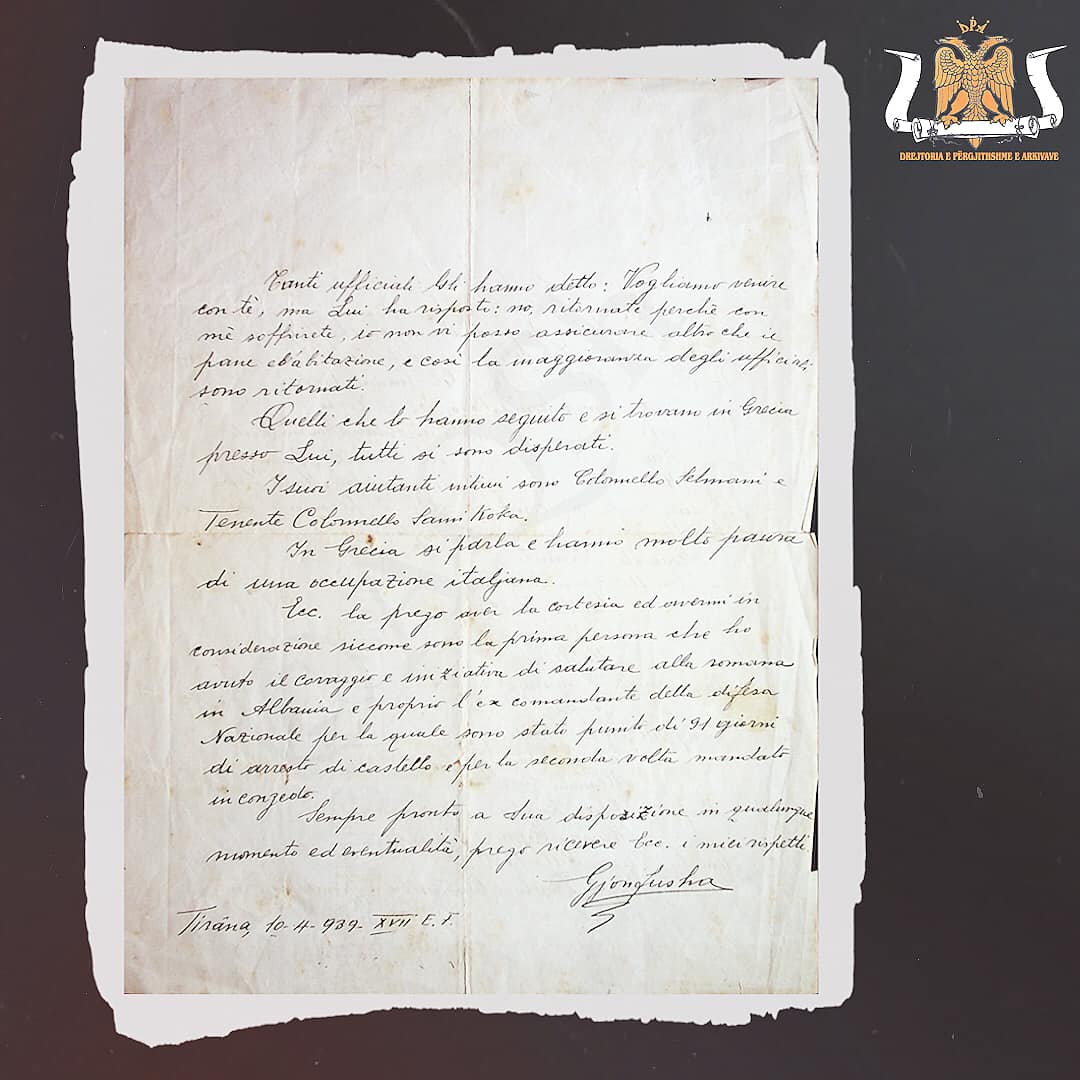 DPA
DREJTORIA E PËRGJITHSHME E ARKIVAVE
Tanti ufficiali Gli hanno detto: Vogliamo venire
con tè, ma Lui ha risposto: no, ritornate perchè con
mè soffrirete, io non vi posso assicurare altro che il
pane e l'abitazione, e così la maggioranza degli ufficiali
sono ritornati.
Quelli che lo hanno seguito e si trovano in Grecia
presso Lui, tutti si sono disperati.
I suoi aiutanti intimi sono Colonnello Selmani e
Tenente Colonnello Sami Koka.
In Grecia si parla e hanno molto paura
di una occupazione italjana.
Ecc. la prego aver la cortesia ed avermi in
considerazione siccome sono la prima persona che ho
avuto il coraggio e iniziativa di salutare alla romana
in Albania e proprio l'ex comandante della difesa
Nazionale per la quale sono stato punito di 91 giorni
di arresto di castello e per la seconda volta mandato
in congedo.
Sempre pronto a Sua disposizione in qualunque
momento ed eventualità, prego ricevere Ecc. i miei rispetti.
Gjon Lusha
Tirana, 10-4-939-XVII E.F.